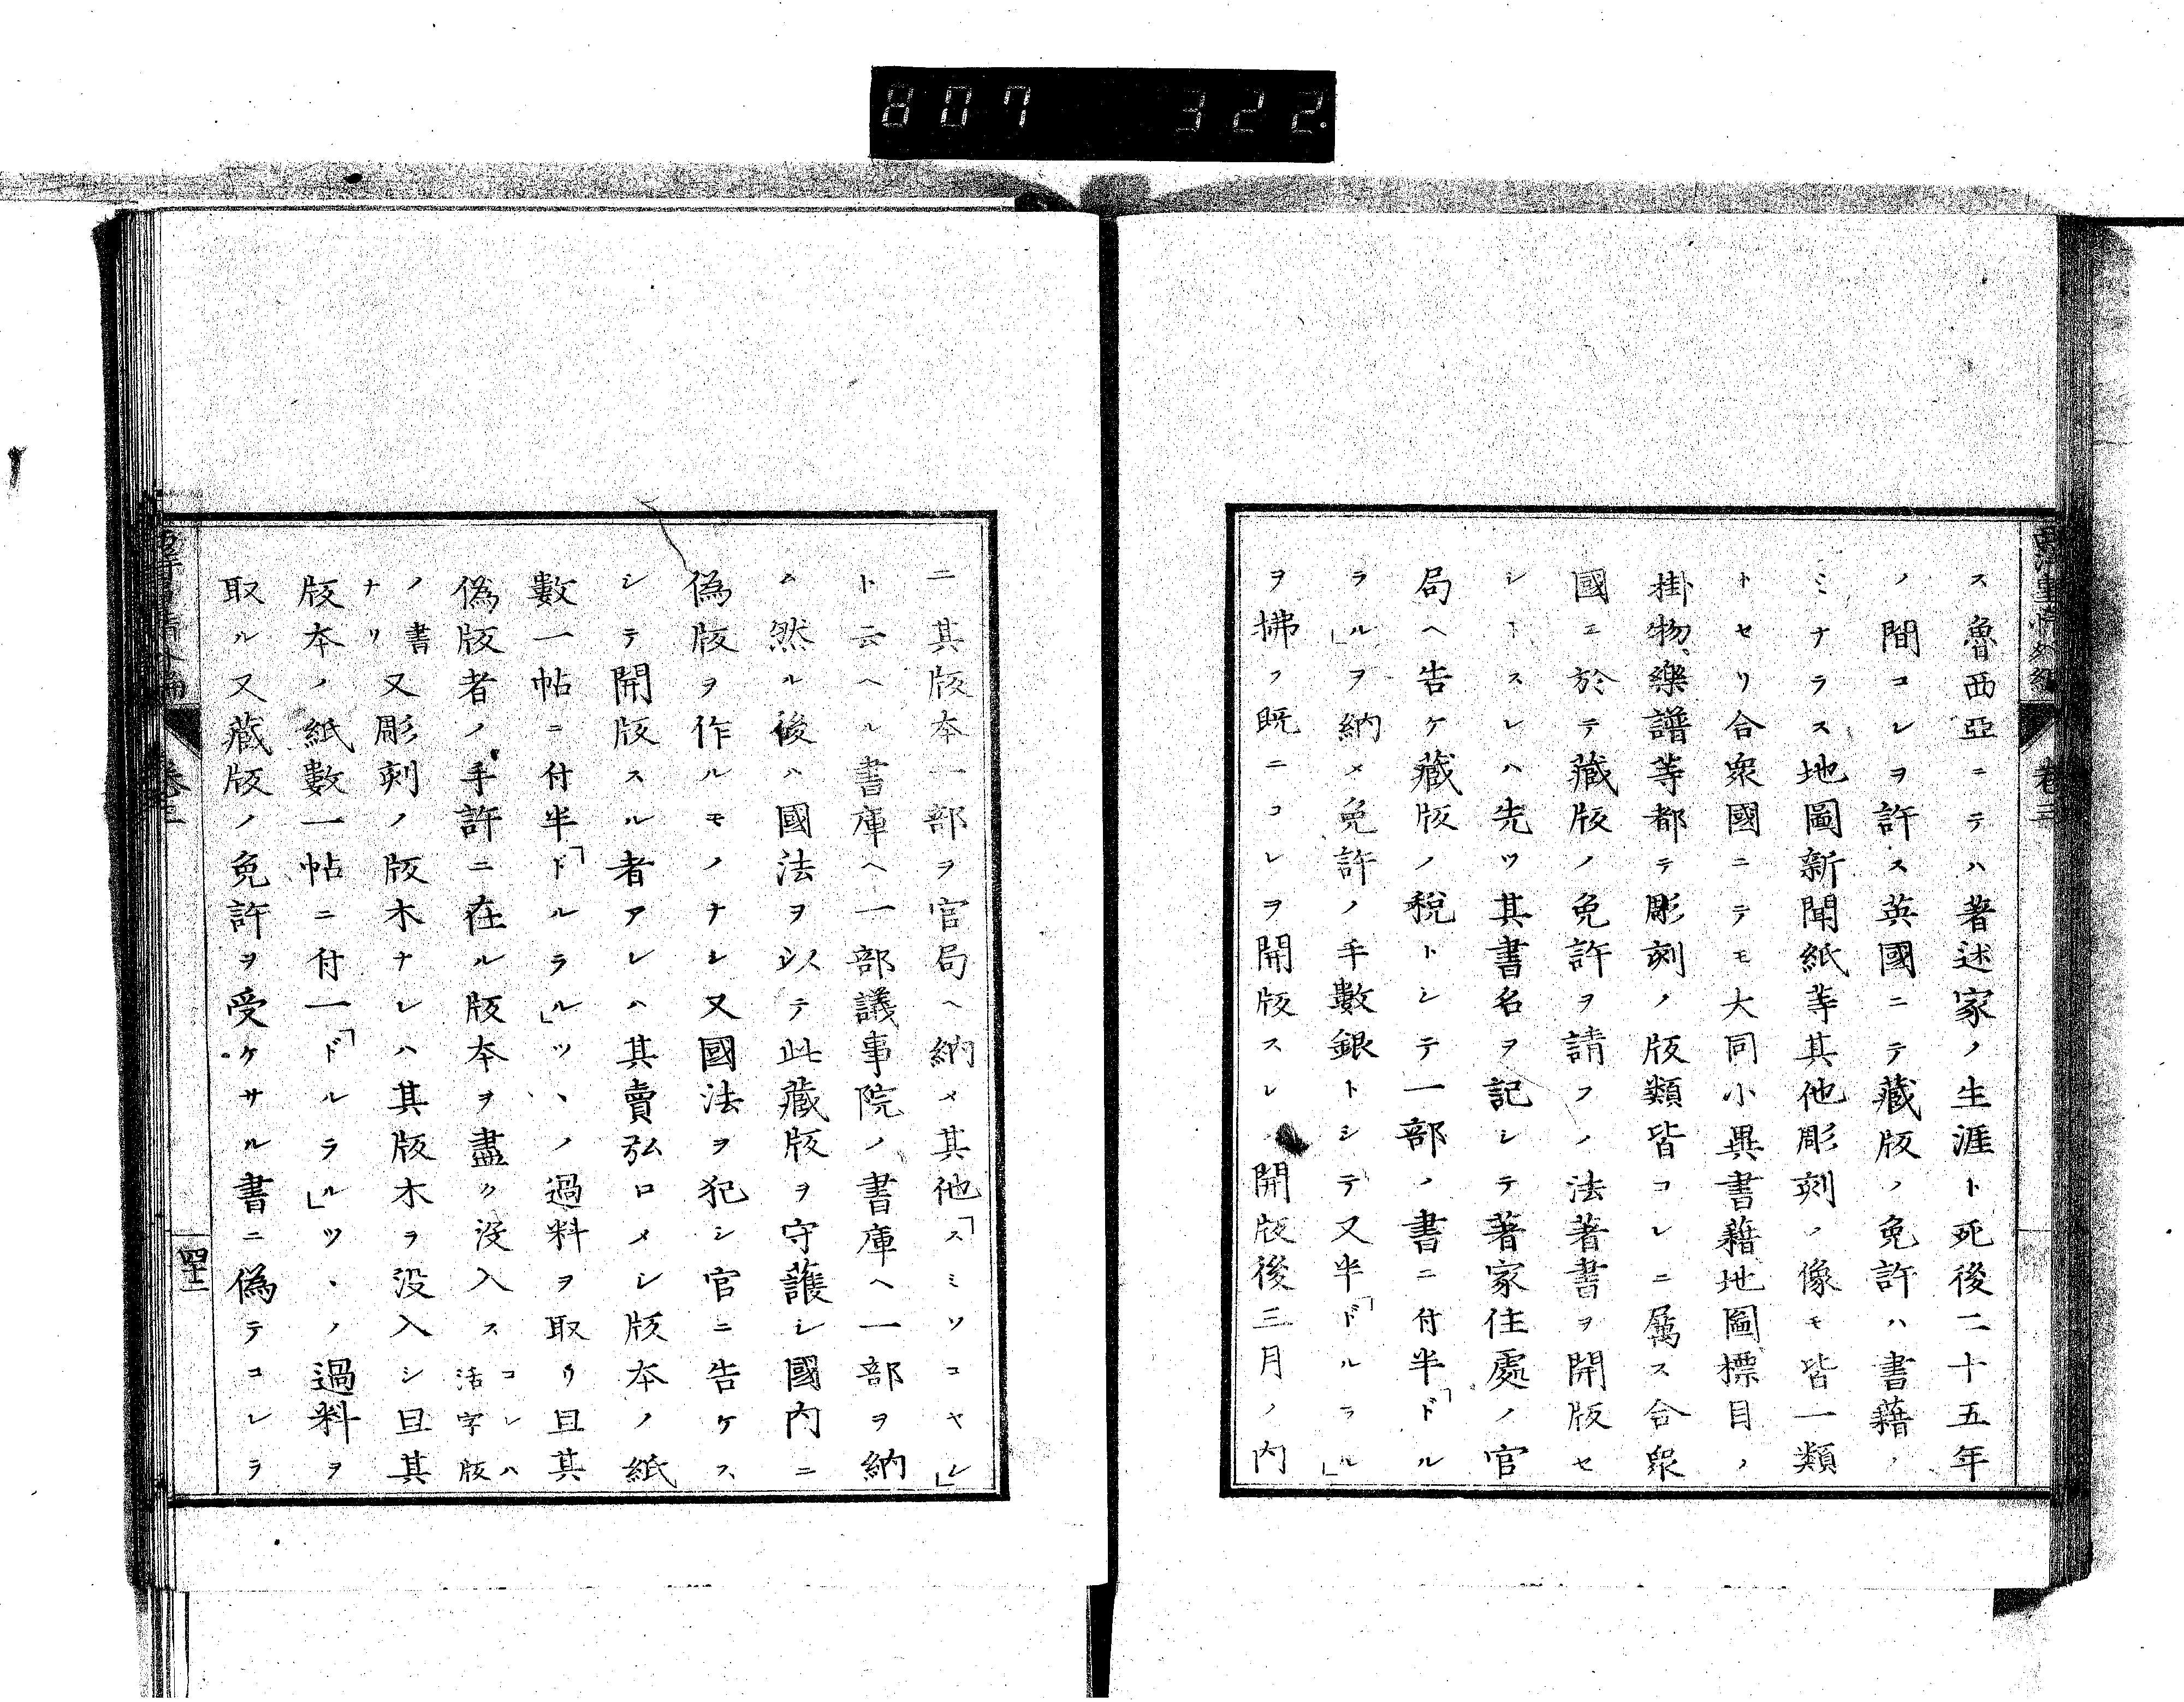 807 322.
西洋事情外編 卷三
ス魯西亞ニテハ著述家ノ生涯ト死後二十五年
ノ間コレヲ許ス英國ニテ藏版ノ免許ハ書籍ノ
ミナラス地圖新聞紙等其他彫刻ノ像モ皆一類
トセリ合衆國ニテモ大同小異書籍地圖標目ノ
掛物、樂譜等都テ彫刻ノ版類皆コレニ屬ス合衆
國ニ於テ藏版ノ免許ヲ請フノ法著書ヲ開版セ
シトスレハ先ツ其書名ヲ記シテ著家住處ノ官
局ヘ告ケ藏版ノ税トシテ一部ノ書ニ付半「ドル
ラル」ヲ納メ免許ノ手數銀トシテ又半「ドルラル」
ヲ拂フ既ニコレヲ開版スレハ開版後三月ノ内
ニ其版本一部ヲ官局ヘ納メ其他「スミソコヤレ」
ト云ヘル書庫ヘ一部議事院ノ書庫ヘ一部ヲ納
ム然ル後ハ國法ヲ以テ此藏版ヲ守護シ國内ニ
偽版ヲ作ルモノナシ又國法ヲ犯シ官ニ告ケス
シテ開版スル者アレハ其賣弘ロメシ版本ノ紙
數一帖ニ付半「ドルラル」ツヽノ過料ヲ取リ且其
偽版者ノ手許ニ在ル版本ヲ盡ク没入ス コレハ活字版
ノ書ナリ 又彫刻ノ版木ナレハ其版木ヲ没入シ且其
版本ノ紙數一帖ニ付一「ドルラル」ツヽノ過料ヲ
取ル又藏版ノ免許ヲ受ケサル書ニ偽テコレラ
西洋事情外編 卷三 四十二